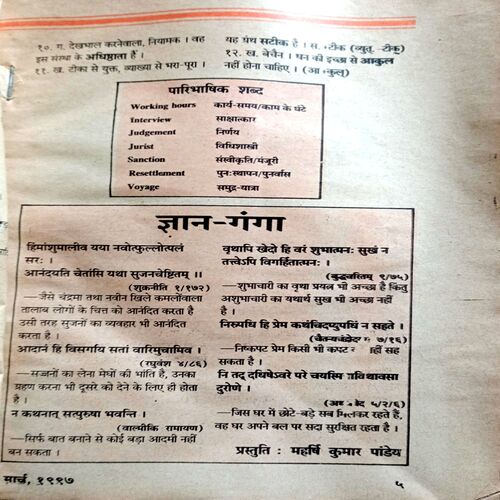 १०. ग. देखभाल करनेवाला, नियामक । वह
इस संस्था के अधिष्ठाता हैं ।
११. ख. टीका से युक्त, व्याख्या से भरा-पूरा ।
यह ग्रंथ सटीक है । स.+टीक (व्युत्.-टीक्)
१२. ख. बेचैन । धन की इच्छा से आकुल
नहीं होना चाहिए । (आ+कुल्)
पारिभाषिक शब्द
Working hours कार्य-समय/काम के घंटे
Interview साक्षात्कार
Judgement निर्णय
Jurist विधिशास्त्री
Sanction संस्वीकृति/मंजूरी
Resettlement पुनःस्थापन/पुनर्वास
Voyage समुद्र-यात्रा
ज्ञान-गंगा
हिमांशुमालीव यया नवोत्फुल्लोत्पलं
सरः ।
आनंदयति चेतांसि यथा सुजनचेष्टितम् ।।
(शुक्रनीति १/१७२)
—जैसे चंद्रमा तथा नवीन खिले कमलोंवाला
तालाब लोगों के चित्त को आनंदित करता है
उसी तरह सुजनों का व्यवहार भी आनंदित
करता है ।
आदानं हि विसर्गाय सतां वारिमुचामिव ।
(रघुवंश ४/८६)
—सज्जनों का लेना मेघों की भांति है, उनका
ग्रहण करना भी दूसरे को देने के लिए ही होता
है ।
न कथनात् सत्पुरुषा भवन्ति ।
(वाल्मीकि रामायण)
—सिर्फ बात बनाने से कोई बड़ा आदमी नहीं
बन सकता ।
वृथापि खेदो हि वरं शुभात्मनः सुखं न
तत्त्वेऽपि विगर्हितात्मनः ।
(बुद्धचरितम् ९/७५)
—शुभाचारी का वृथा प्रयत्न भी अच्छा है किंतु
अशुभाचारी का यथार्थ सुख भी अच्छा नहीं
है ।
निरुपधि हि प्रेम कथंचिदप्युपधिं न सहते ।
७/१६)
—निष्कपट प्रेम किसी भी कपट नहीं सह
सकता है ।
नि तद् दधिषेऽवरे परे च
दुरोणे ।
५/२/६)
—जिस घर में छोटे-बड़े सब मिलकर रहते हैं,
वह घर अपने बल पर सदा सुरक्षित रहता है ।
प्रस्तुति : महर्षि कुमार पांडेय
मार्च, १९९७
५